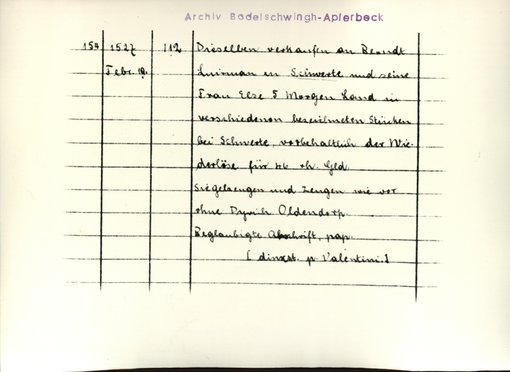 Archiv Bodelschwingh-Aplerbeck
154 1527 112 Dieselben verkaufen an Berndt
Febr. 19. Luirman in Schwerte und seine
Frau Else 5 Morgen Land in
verschiedenen bezeichneten Stücken
bei Schwerte, vorbehaltlich der Wie-
derlöse für 46 rh. Gld
Siegelzeugen und Zeugen wie vor
ohne Dyrich Oldendorp.
Beglaubigte Abschrift, pap.
[ dinxst. p Valentini.]